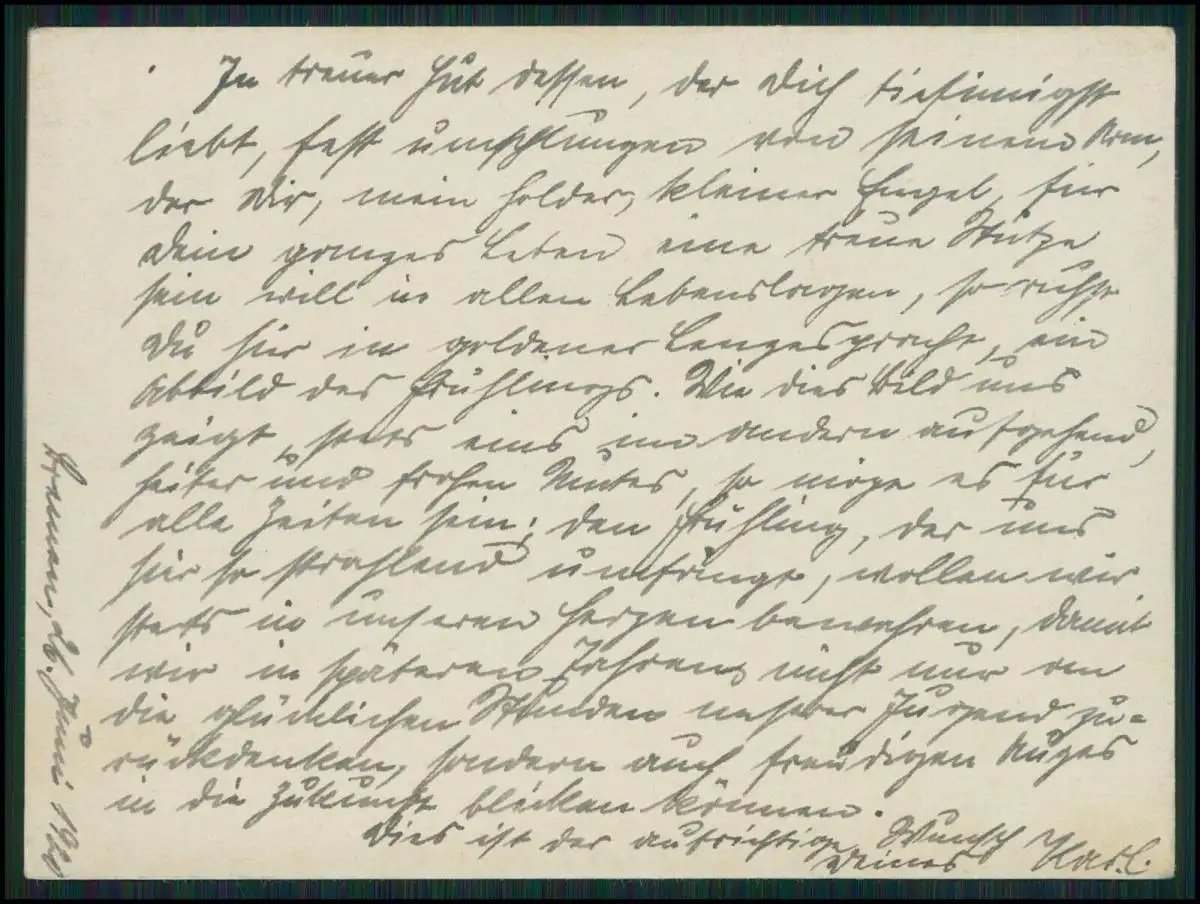 In treuer Hut dessen, der Dich tiefinnigst
liebt, fest umschlungen von seinem Arm,
der Dir, mein holder, kleiner Engel, für
Dein ganzes Leben eine treue Stütze
sein will in allen Lebenslagen, so ruhst
Du hier in goldener Lenzespracht, ein
Abbild des Frühlings. Wie dies Bild uns
zeigt, stets eins im andern aufgehend,
heiter und frohen Mutes, so möge es für
alle Zeiten sein; den Frühling, der uns
hier so strahlend umfängt, wollen wir
stets in unseren Herzen bewahren, damit
wir in späteren Jahren nicht nur an
die glücklichen Stunden unserer Jugend zu-
rückdenken, sondern auch freudigen Auges
in die Zukunft blicken können.
Dies ist der aufrichtige Wunsch
Deines Karl.
Bremen, 26. Juni 1920